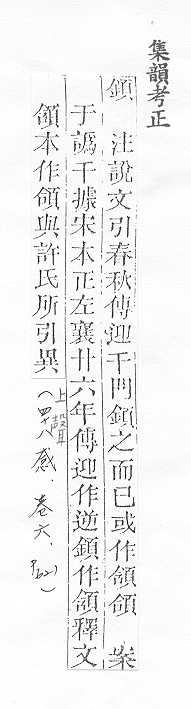 集韻考正
顉 注說文引春秋傳迎千門顉之而已或作頜頷 案
于譌千據宋本正左襄廿六年傳迎作逆顉作頷釋文
頷本作頜與許氏所引異(上聲四十八感、卷六、P.621)